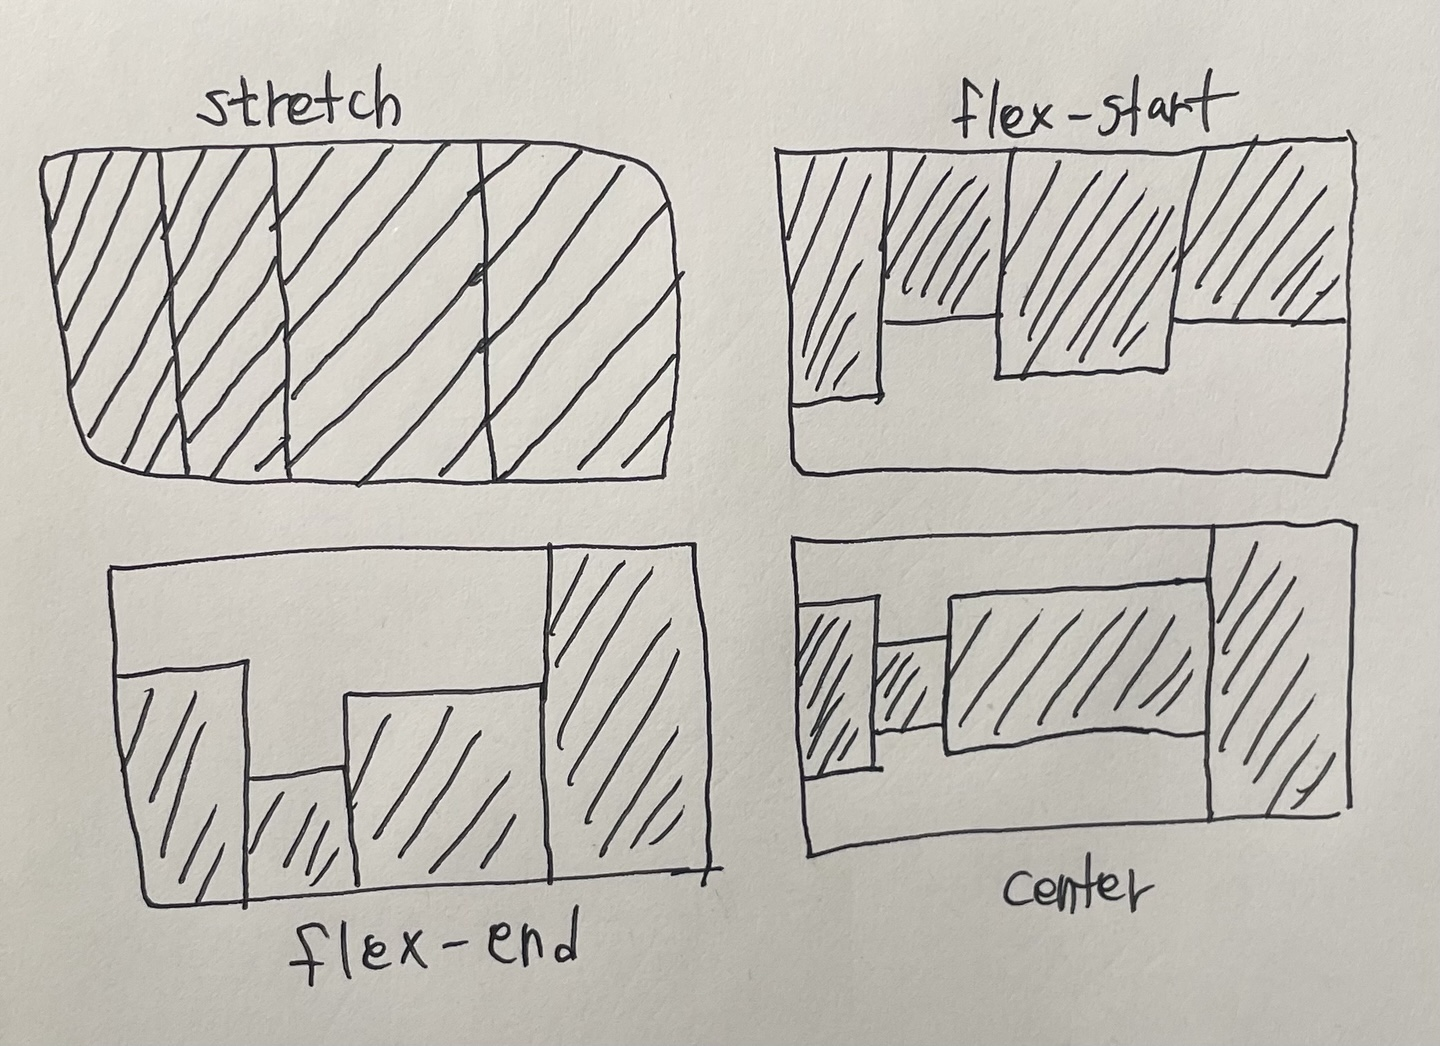 stretch
flex-start
flex-end
center